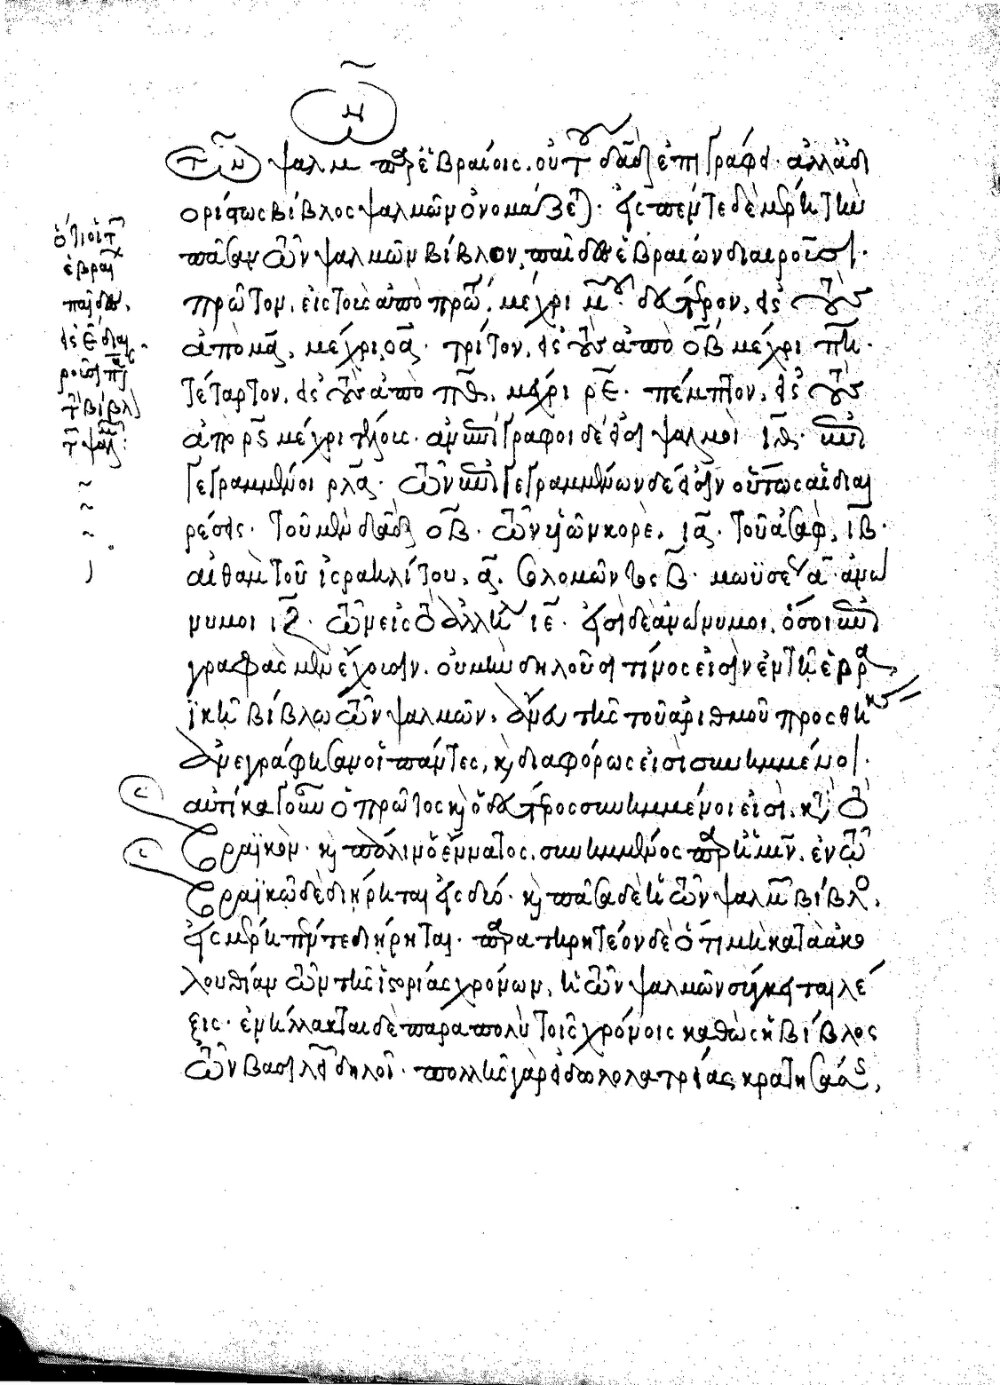 τῶν ψαλμ παρ ἑβραίοις. οὐ τοῦ δαδ ἐπιγραφ. ἀλλ ἀδι
ορίστως βίβλος ψαλμῶν ὀνομάζετ. εἰς πέντε δὲ μέρη τὴν
πᾶσαν τῶν ψαλμῶν βίβλον, παῖδες ἑβραίων διαιροῦσι.
πρῶτον, εἰς τοὺς ἀπὸ πρώτ, μέχρι μ. δεύτερον, εἰς τοὺς
ἀπὸ μα, μέχρι οα. τρίτον, εἰς τοὺς ἀπὸ οβ μέχρι πη.
τέταρτον, εἰς τοὺς ἀπὸ πθ, μέχρι ρε. πέμπτον, εἰς τοὺς
ἀπὸ ρς μέχρι τέλους. ἀνεπίγραφοι δέ εἰσι ψαλμοὶ ιθ. ἐπι
γεγραμμένοι ρλα. τῶν ἐπιγεγραμμένων δέ εἰσιν οὕτως αἱ διαι
ρέσεις. τοῦ μὲν δαδ οβ. τῶν υἱῶν κορὲ, ια. τοῦ ἀσαφ, ιβ.
αἰθὰμ τοῦ ἰσραηλίτου, α. σολομῶντος β. μωϋσέ α. ἀνω
νυμοι ιζ. τῶν εἰς τὸ ἀλλη ιε. εἰσὶ δὲ ἀνώνυμοι, ὅσοι ἐπι
γραφὰς μὲν ἔχουσιν. οὐ μὴν δηλοῦσι τίνος εἰσὶν ἐν τῇ ἑβρ
ϊκῇ βίβλῳ τῶν ψαλμῶν, ἄνευ τῆς τοῦ ἀριθμοῦ προσθήκης
ἀνεγράφησαν οἱ πάντες, καὶ διαφόρως εἰσὶ συνημμένοι.
αὐτίκα γοῦν ὁ πρῶτος καὶ ὁ δεύτερος συνημμένοι εἰσὶ. κτ τὸ
ἑβραϊκὸν. καὶ πάλιν ὁ ἔννατος, συνημμένος παρ ἡμῖν. ἐν τῷ
ἑβραϊκῷ δὲ διῄρηται εἰς δύο. καὶ πᾶσα δὲ ἡ τῶν ψαλμ βίβλος,
εἰς μέρη πέντε διῄρηται. παρατηρητέον δὲ ὅτι μὴ κατὰ ἀκο
λουθίαν τῶν τῆς ἱστορίας χρόνων, ἡ τῶν ψαλμῶν σύγκειται λέ
ξις. ἐνήλλακται δὲ παρὰ πολὺ τοῖς χρόνοις καθὼς ἡ βίβλος
τῶν βασιλ δηλοῖ. πολλῆς γὰρ εἰδωλολατρίας κρατησάσης,
ὅτι οἱ τ
ἑβραι
παῖδες,
εἰς ε διαι
ροῦσι πᾶς
τὴν βίβλ
τ ψαλμ: